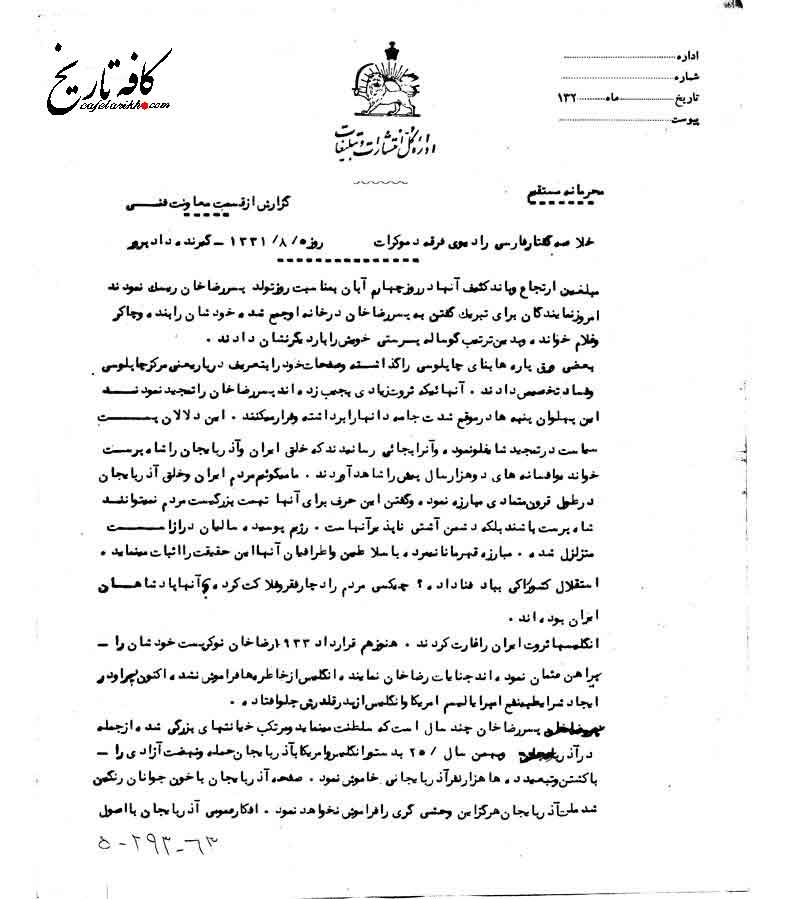 کافه تاریخ
cafetarikh.com
اداره
شماره
تاریخ ماه ۱۳۲
پیوست
اداره کل انتشارات و تبلیغات
محرمانه مستقیم
گزارش از قسمت معاونت فنی
خلاصه گفتار فارسی رادیوی فرقه دموکرات روز ۵/ ۸/ ۱۳۳۱ – گیرنده دادپرور
مبلغین ارتجاع وباند کثیف آنها در روز چهارم آبان بمناسبت روز تولد پسر رضاخان ریسک نمودند
امروز نمایندگان برای تبریک گفتن به پسر رضاخان در خانه او جمع شده خودشان را بنده و چاکر
و غلام خوانده و بدین ترتیب گوساله پرستی خویش را بار دیگر نشان دادند .
بعضی ورق پاره ها بنای چاپلوسی را گذاشته و صفحات خود را بتعریف دربار یعنی مرکز چاپلوسی
و فساد تخصیص دادند . آنهائیکه ثروت زیادی بجیب زده اند پسر رضاخان را تمجید نمودند
این پهلوان پنبه ها در موقع شدت جامه دانها را برداشته و فرار میکنند . این دلالان پست
سیاست در تمجید شاه غلو نموده و آنرا بجائی رسانیدند که خلق ایران و آذربایجان را شاه پرست
خوانده و افسانه های دو هزار سال پیش را شاهد آوردند . ما میگوئیم مردم ایران و خلق آذربایجان
در طول قرون متمادی مبارزه نموده و گفتن این حرف برای آنها تهمت بزرگیست مردم نمیتوانند
شاه پرست باشند بلکه دشمن آشتی ناپذیر آنهاست . رژیم پوسیده سالیان دراز است
متزلزل شده . مبارزه قهرمانانه مردم با سلاطین و اطرافیان آنها این حقیقت را اثبات مینماید .
استقلال کشور را کی بباد فنا داده ؟ چه کسی مردم را دچار فقر و فلاکت کرده ؟ آنها پادشاهان
ایران بوده اند .
انگلیسها ثروت ایران را غارت کردند . هنوز هم قرارداد ۱۹۳۳ رضاخان نوکر پست خودشان را –
پیراهن عثمان نموده اند جنایات رضاخان نماینده انگلیس از خاطره ها فراموش نشده اکنون پسر او در
ایجاد شرایط بنفع امپریالیسم امریکا و انگلیس از پدر قلدرش جلو افتاده .
پسر رضاخان چند سال است که سلطنت مینماید و مرتکب خیانتهای بزرگی شده از جمله
در آذر و بهمن سال / ۲۵ بدستور انگلیس و امریکا بآذربایجان حمله و نهضت آزادی را –
با کشتن و تبعید ده ها هزار نفر آذربایجانی خاموش نمود . صفحه آذربایجان با خون جوانان رنگین
شد ملت آذربایجان هرگز این وحشی گری را فراموش نخواهد نمود . افکار عمومی آذربایجان با اصول
۵-۲۹۳-۶۳